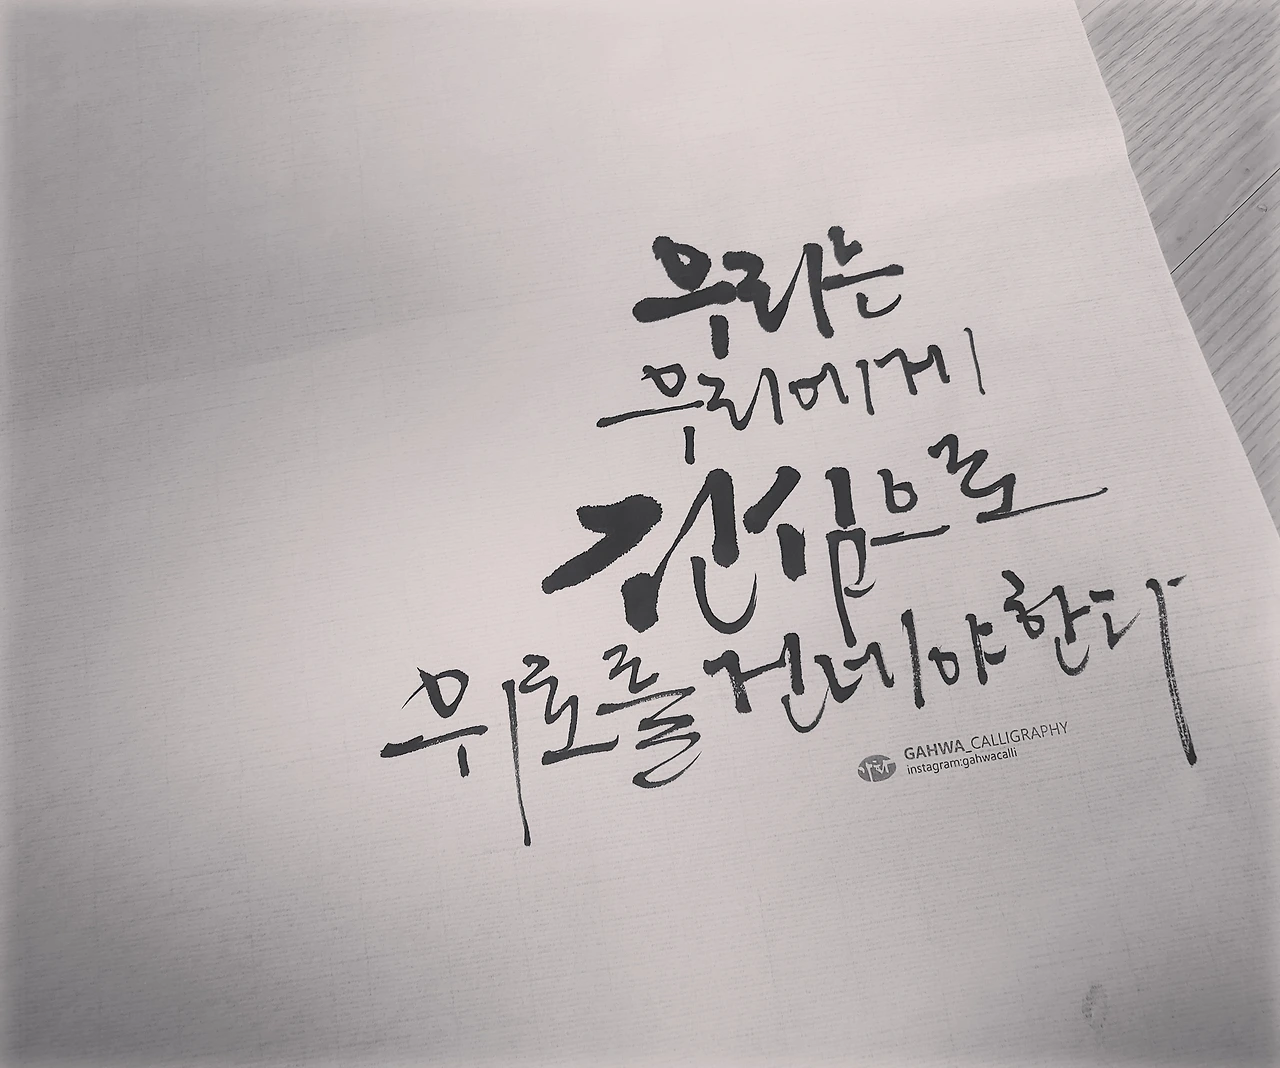 우리는
우리에게
진심으로
위로를 건네야한다
가화
GAHWA_CALLIGRAPHY
instagram:gahwacalli